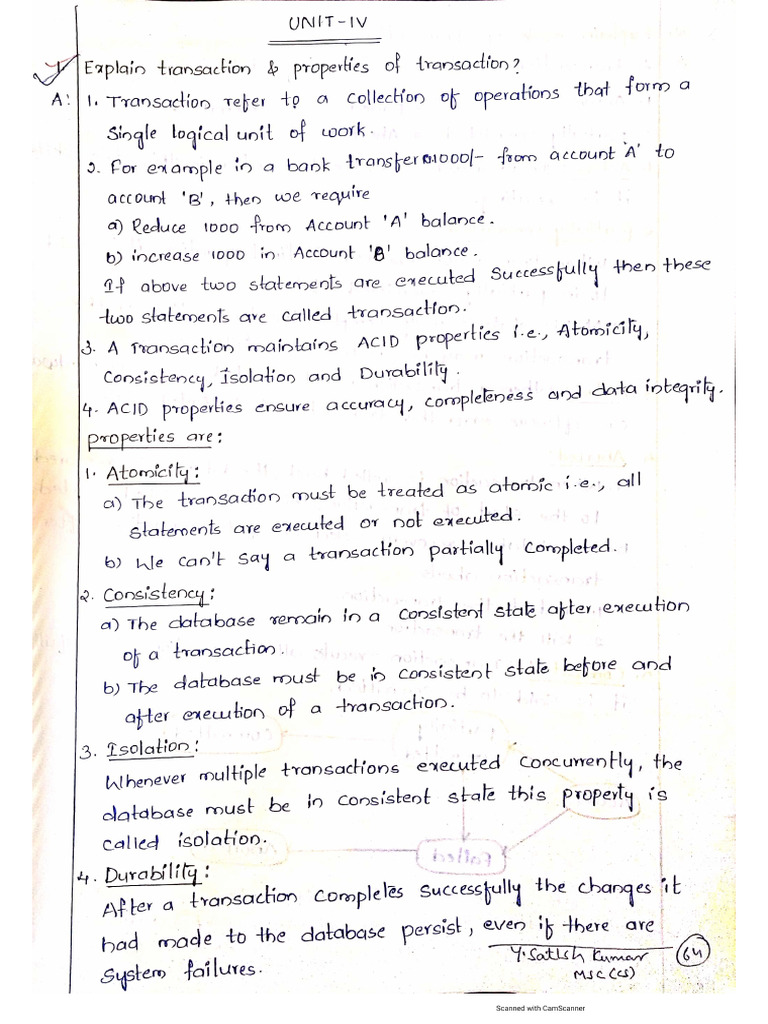 UNIT-IV
1. Explain transaction & properties of transaction?
A: 1. Transaction refer to a collection of operations that form a
single logical unit of work.
2. For example in a bank transfer 1000/- from account 'A' to
account 'B', then we require
a) Reduce 1000 from Account 'A' balance.
b) increase 1000 in Account 'B' balance.
If above two statements are executed successfully then these
two statements are called transaction.
3. A Transaction maintains ACID properties i.e., Atomicity,
Consistency, Isolation and Durability.
4. ACID properties ensure accuracy, completeness and data integrity.
properties are:
1. Atomicity:
a) The transaction must be treated as atomic i.e., all
statements are executed or not executed.
b) We can't say a transaction partially completed.
2. Consistency:
a) The database remain in a consistent state after execution
of a transaction.
b) The database must be in consistent state before and
after execution of a transaction.
3. Isolation:
Whenever multiple transactions executed concurrently, the
database must be in consistent state this property is
called isolation.
4. Durability:
After a transaction completes successfully the changes it
had made to the database persist, even if there are
system failures.
Y. Satish Kumar
MSC (CS)
64
Scanned with CamScanner